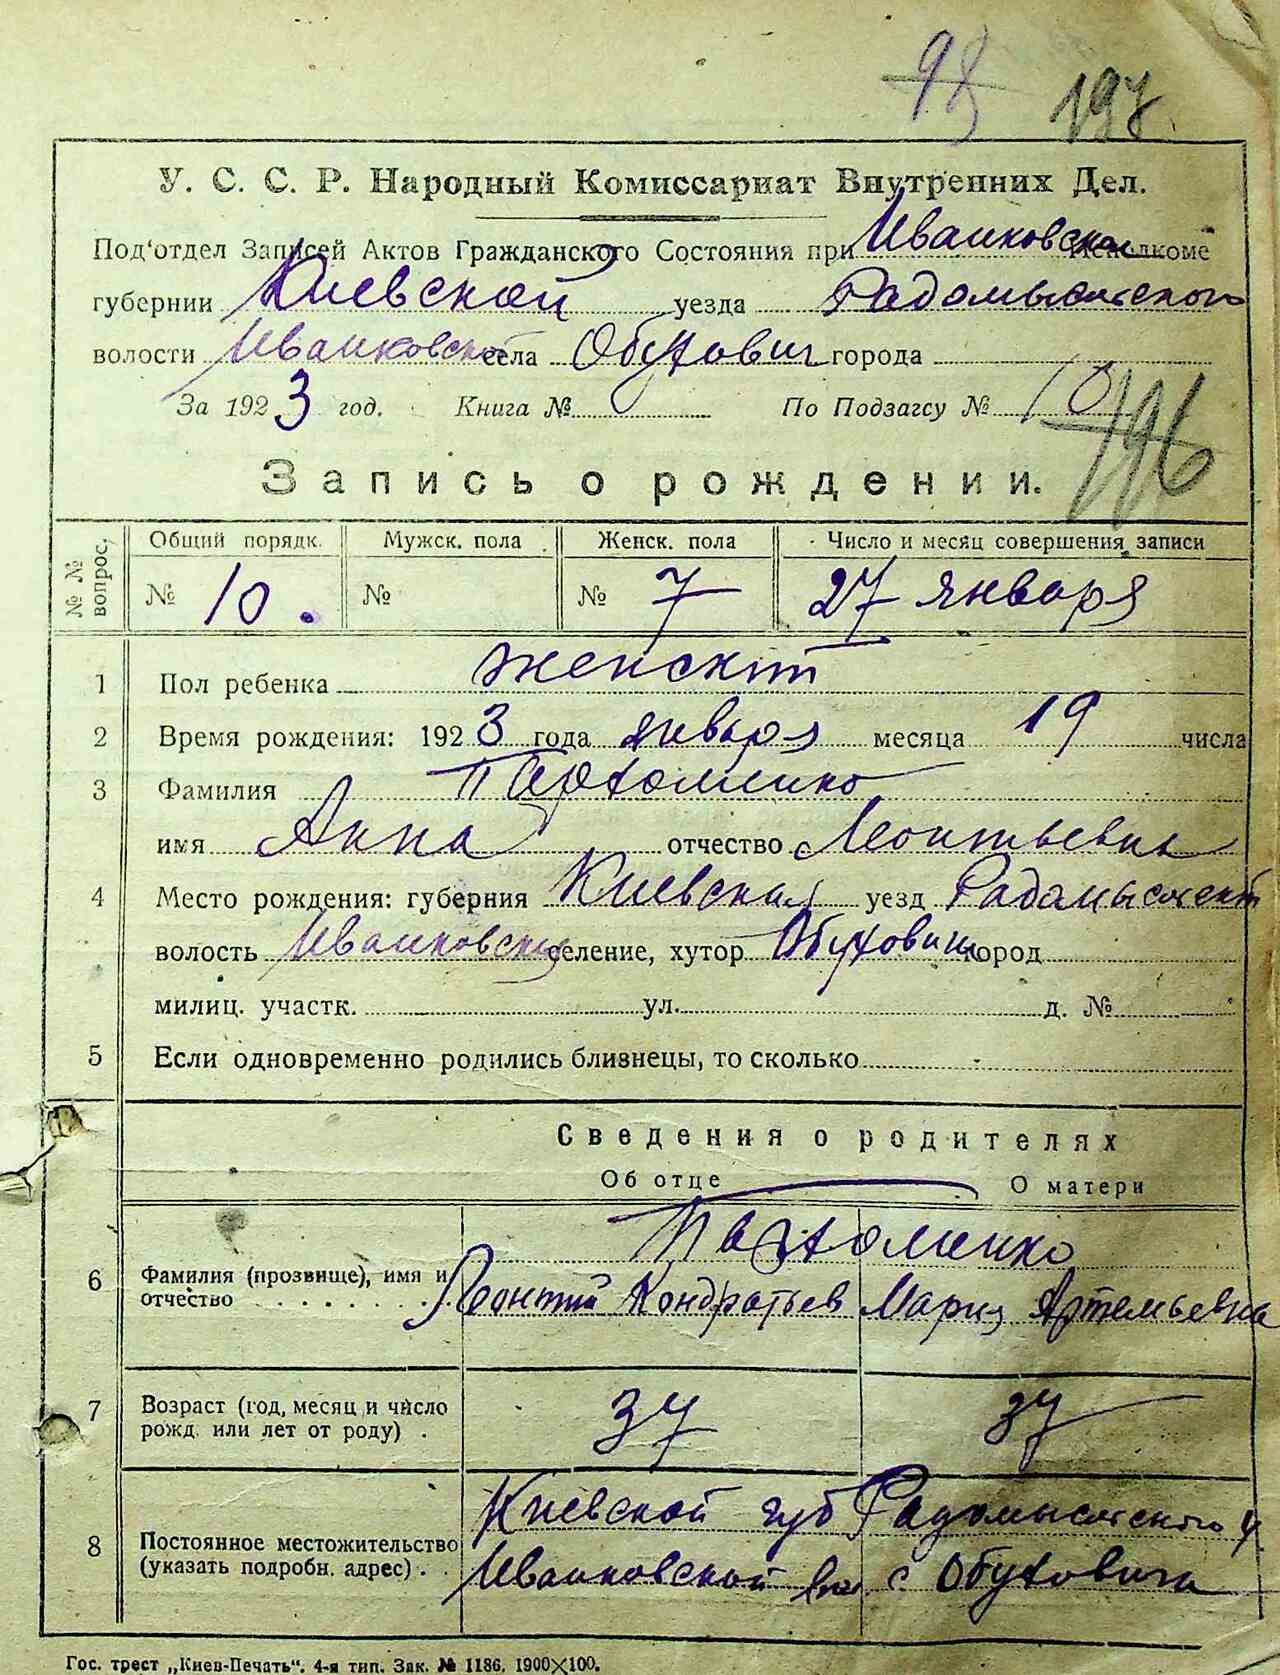 98 197
У. С. С. Р. Народный Комиссариат Внутренних Дел.
Под'отдел Записей Актов Гражданского Состояния при Иванковском Исполкоме
губернии Киевской уезда Радомысльского
волости Иванковской села Обухович города
За 1923 год. Книга № По Подзагсу № 10
196
Запись о рождении.
№ № вопрос. Общий порядк. Мужск. пола Женск. пола Число и месяц совершения записи
№ 10. № № 7 27 января
1 Пол ребенка женский
2 Время рождения: 1923 года января месяца 19 числа
3 Фамилия Пархоменко
имя Анна отчество Леонтьевна
4 Место рождения: губерния Киевская уезд Радомысльский
волость Иванковская селение, хутор Обуховичи город
милиц. участк. ул. д. №
5 Если одновременно родились близнецы, то сколько
Сведения о родителях
Об отце О матери
Пархоменко
6 Фамилия (прозвище), имя и
отчество Леонтий Кондратьев Мария Артемьевна
7 Возраст (год, месяц и число
рожд. или лет от роду) . 37 37
Киевской губ Радомысльского у
8 Постоянное местожительство
(указать подробн. адрес) . Иванковской вол. с Обуховичи
Гос. трест „Киев-Печать“. 4-я тип. Зак. № 1186. 1900×100.